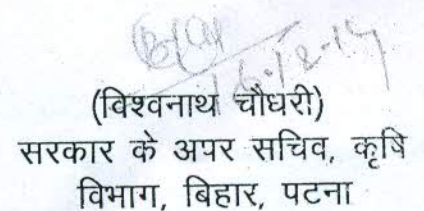 16.12.14
(विश्वनाथ चौधरी)
सरकार के अपर सचिव, कृषि
विभाग, बिहार, पटना